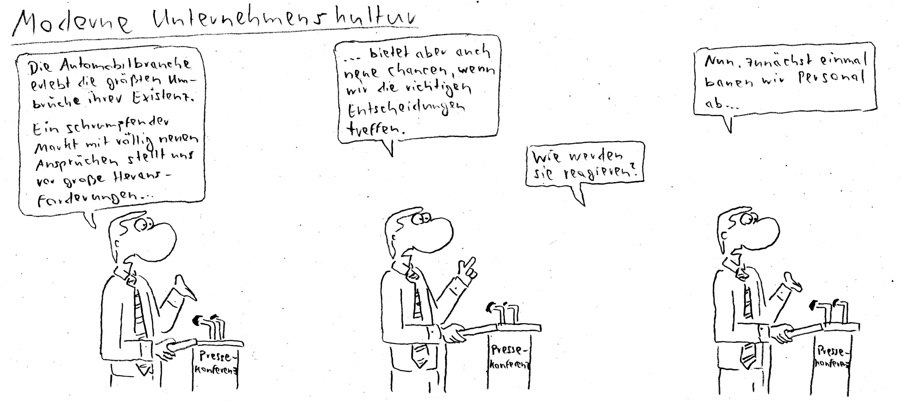 Moderne Unternehmenskultur
Die Automobilbranche
erlebt die größten Um-
brüche ihrer Existenz.
Ein schrumpfender
Markt mit völlig neuen
Ansprüchen stellt uns
vor große Heraus-
forderungen...
Presse-
konferenz
... bietet aber auch
neue Chancen, wenn
wir die richtigen
Entscheidungen
treffen.
Wie werden
sie reagieren?
Presse-
konferenz
Nun, zunächst einmal
bauen wir Personal
ab...
Presse-
konferenz